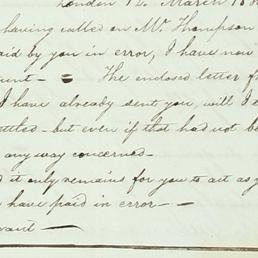 London 12. March 18
having called on Mr. Thompson
aid by you in error, I have now
unt - The enclosed letter f
I have already sent you, will I
ttled - but even if that had not b
any way concerned -
d it only remains for you to act as y
have paid in error -
want -